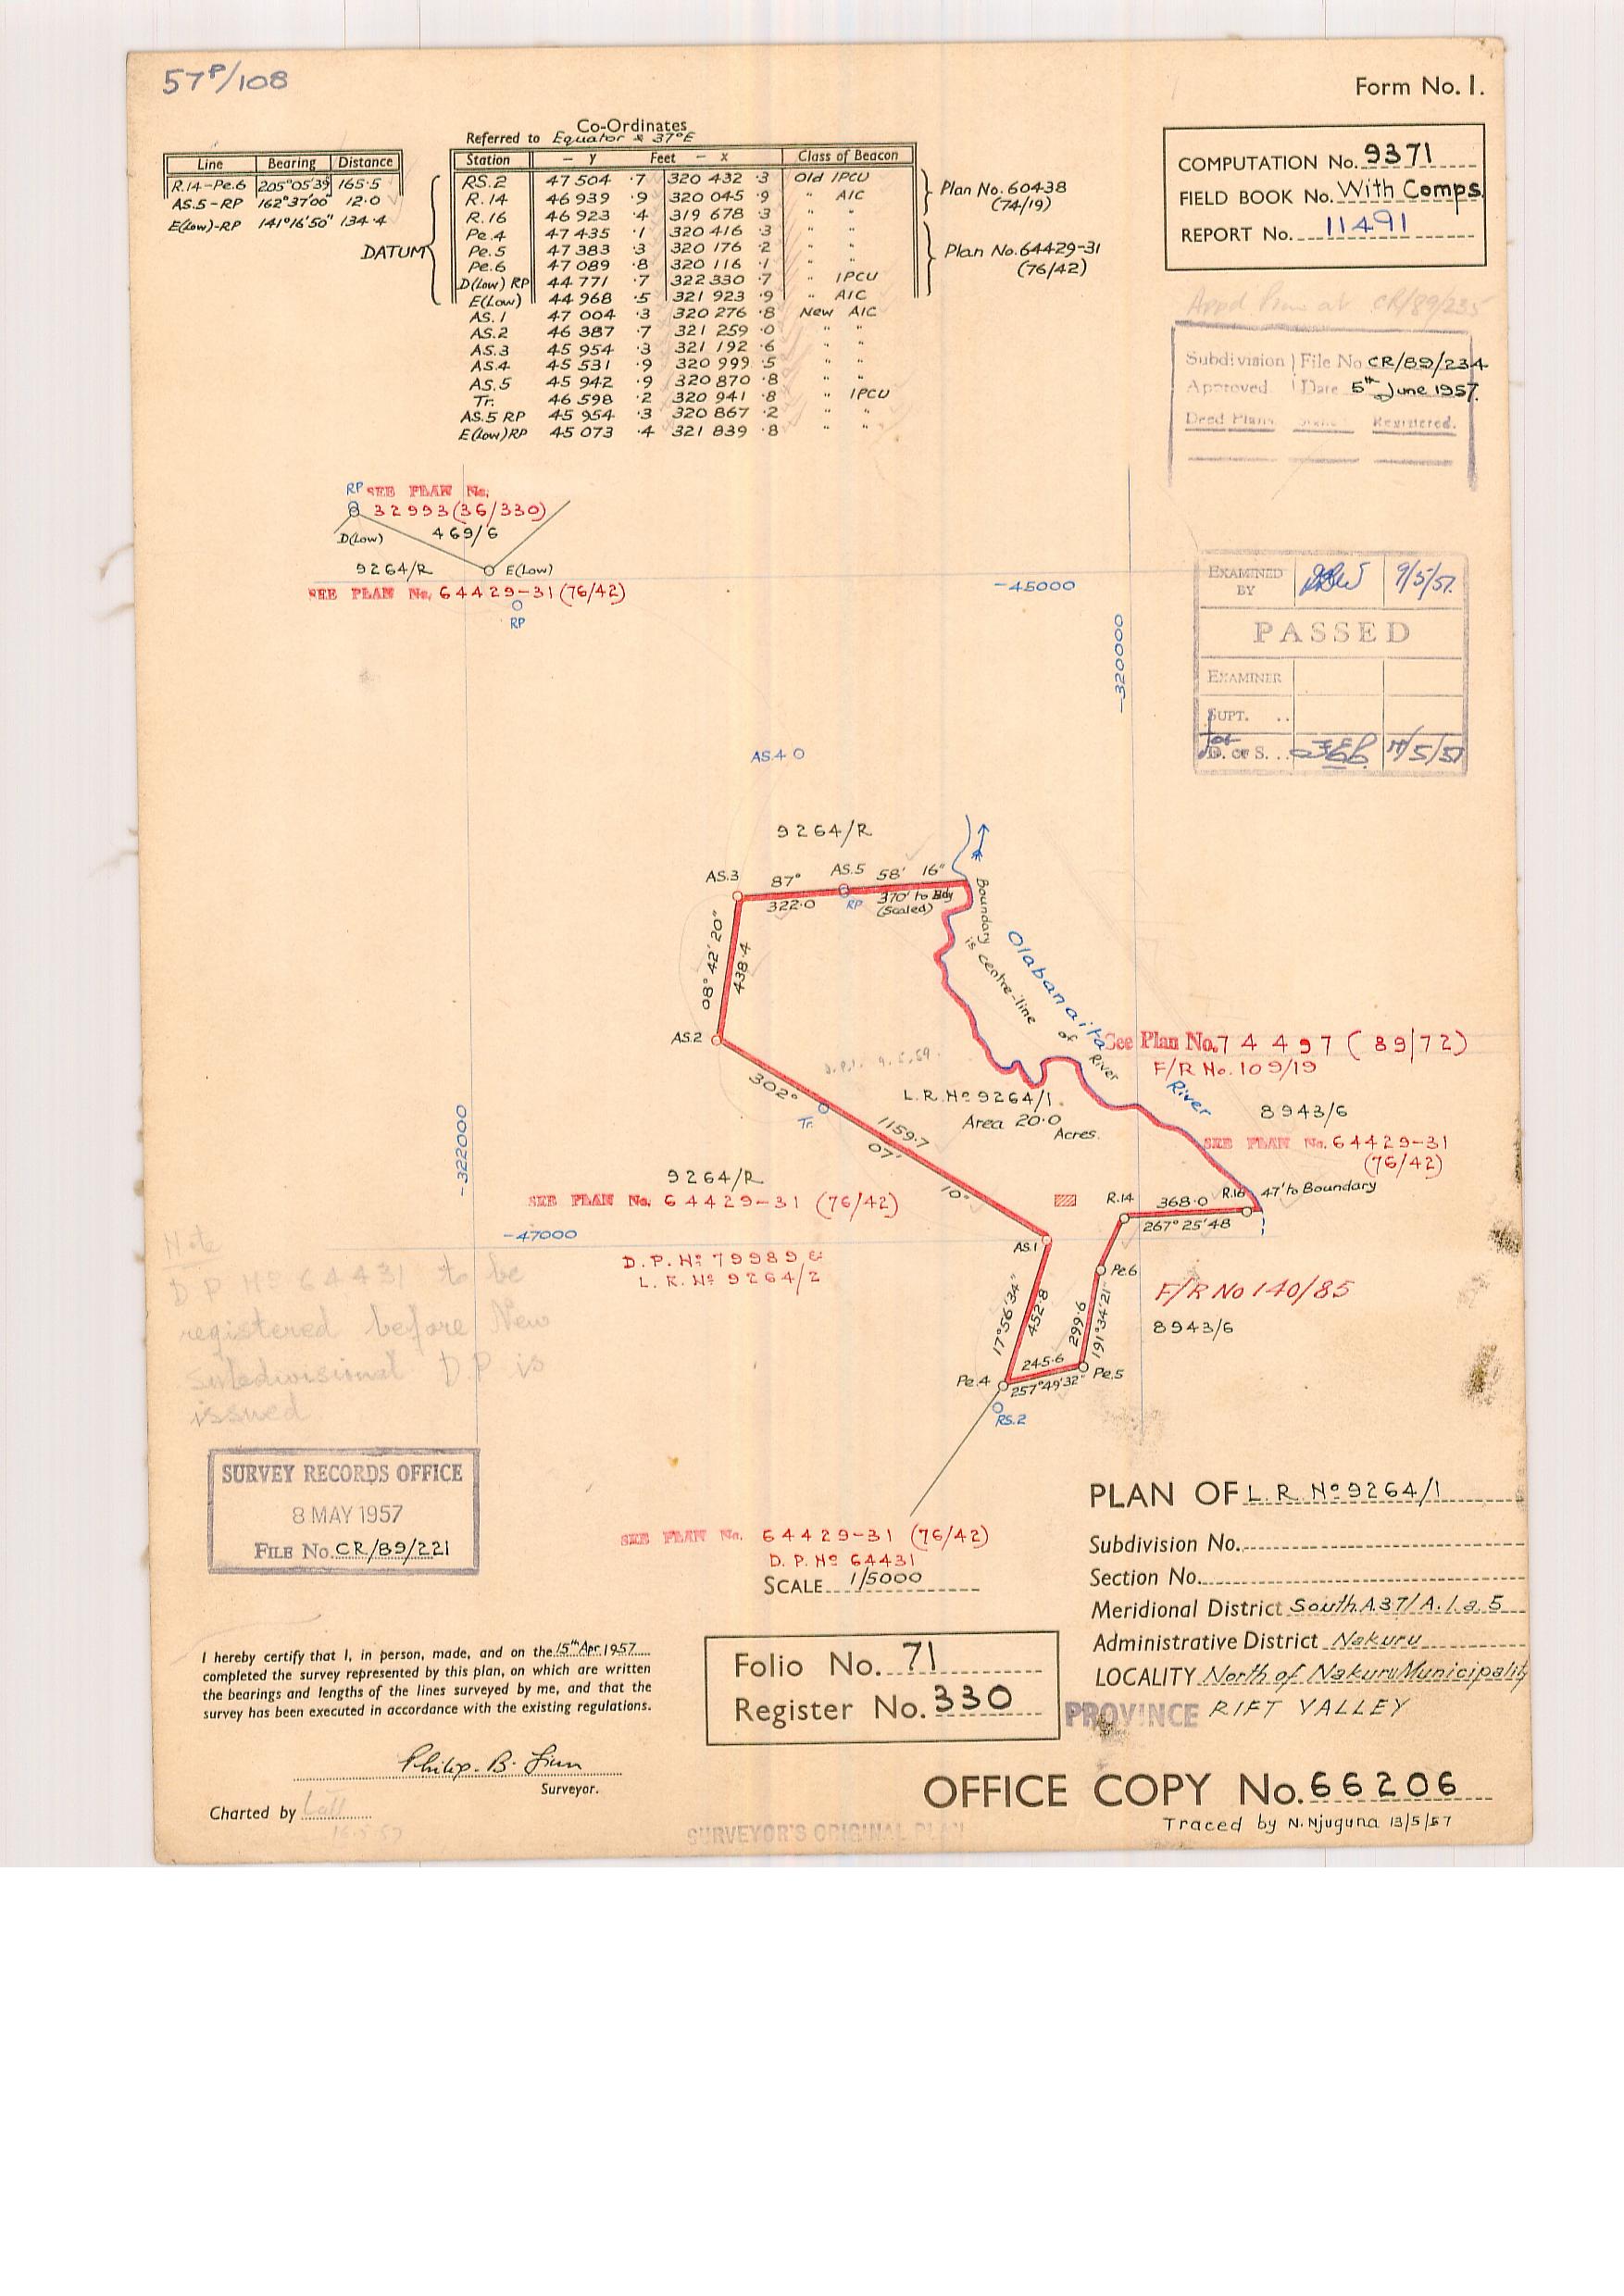 57P/108
Form No. 1.
Line Bearing Distance
R.14-Pe.6 205°05'39" 165·5
AS.5-RP 162°37'00" 12·0
E(Low)-RP 141°16'50" 134·4
Co-Ordinates
Referred to Equator & 37°E
Station - y Feet - x Class of Beacon
DATUM
RS.2 47 504 ·7 320 432 ·3 Old IPCU
R.14 46 939 ·9 320 045 ·9 " AIC
R.16 46 923 ·4 319 678 ·3 " "
Pe.4 47 435 ·1 320 416 ·3 " "
Pe.5 47 383 ·3 320 176 ·2 " "
Pe.6 47 089 ·8 320 116 ·1 " "
D(Low) RP 44 771 ·7 322 330 ·7 " IPCU
E(Low) 44 968 ·5 321 923 ·9 " AIC
AS.1 47 004 ·3 320 276 ·8 New AIC
AS.2 46 387 ·7 321 259 ·0 " "
AS.3 45 954 ·3 321 192 ·6 " "
AS.4 45 531 ·9 320 999 ·5 " "
AS.5 45 942 ·9 320 870 ·8 " "
Tr. 46 598 ·2 320 941 ·8 " IPCU
AS.5 RP 45 954 ·3 320 867 ·2 " "
E(Low)RP 45 073 ·4 321 839 ·8 " "
Plan No. 60438
(74/19)
Plan No. 64429-31
(76/42)
COMPUTATION No. 9371
FIELD BOOK No. With Comps.
REPORT No. 11491
CR/89/235
Subdivision File No CR/89/234
Approved Date 5th June 1957.
Deed Plans Registered.
RP SEE PLAN No.
32993(36/330)
D(Low) 469/6
9264/R E(Low)
SEE PLAN No. 64429-31(76/42)
RP
-45000
-320000
EXAMINED
BY 9/5/57.
PASSED
EXAMINER
SUPT. ..
for
D. OF S. ... /5/57
AS.4
9264/R
AS.3 87° AS.5 58' 16"
322·0 RP 370' to Bdy
(Scaled)
08° 42' 20"
438·4
Boundary is centre-line of River
Olabanaita River
AS.2
See Plan No. 74497 (89/72)
F/R No. 109/19
302° 07' 10"
1159·7
Tr.
L.R. No 9264/1.
Area 20·0 Acres.
8943/6
SEE PLAN No. 64429-31
(76/42)
-322000
9264/R
SEE PLAN No. 64429-31 (76/42)
R.14 368·0 R.16 47' to Boundary
267° 25' 48"
-47000
AS.1
D.P. No 79989 &
L.R. No 9264/2
Note
D.P No 64431 to be
registered before New
Subdivisional D.P is
issued
Pe.6
17°56'34"
452·8
299·6
191°34'21"
F/R No 140/85
8943/6
245·6
Pe.4 257°49'32" Pe.5
RS.2
SURVEY RECORDS OFFICE
8 MAY 1957
FILE No. CR/89/221
SEE PLAN No. 64429-31 (76/42)
D.P. No 64431
SCALE 1/5000
PLAN OF L.R. No 9264/1
Subdivision No.
Section No.
Meridional District South A.37/A.1.a.5
Administrative District Nakuru
LOCALITY North of Nakuru Municipality
PROVINCE RIFT VALLEY
I hereby certify that I, in person, made, and on the 15th Apr. 1957
completed the survey represented by this plan, on which are written
the bearings and lengths of the lines surveyed by me, and that the
survey has been executed in accordance with the existing regulations.
Philip. B.
Surveyor.
Charted by Lall
Folio No. 71
Register No. 330
OFFICE COPY No. 66206
Traced by N. Njuguna 13/5/57
SURVEYOR'S ORIGINAL PLAN